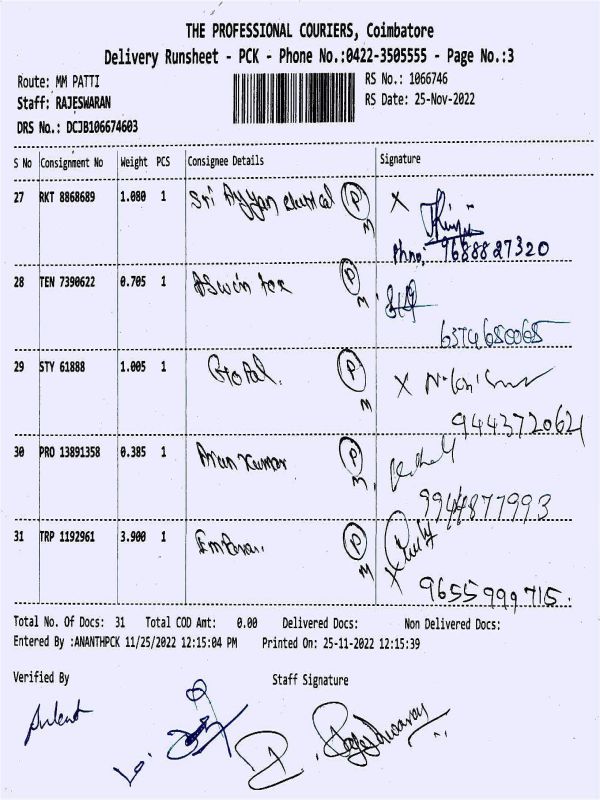 THE PROFESSIONAL COURIERS, Coimbatore
Delivery Runsheet - PCK - Phone No.:0422-3505555 - Page No.:3
Route: MM PATTI RS No.: 1066746
Staff: RAJESWARAN RS Date: 25-Nov-2022
DRS No.: DCJB106674603
S No Consignment No Weight PCS Consignee Details Signature
27 RKT 8868689 1.080 1 Sri Ayyan P X
M Phno: 9688827320
28 TEN 7390622 0.705 1 Aswin tex P
M 6374680068
29 STY 61888 1.005 1 Gopal. P X
M 9443772062
30 PRO 13891358 0.385 1 Arun Kumar P
M 9944877993
31 TRP 1192961 3.900 1 P
M X 9655999715.
Total No. Of Docs: 31 Total COD Amt: 0.00 Delivered Docs: Non Delivered Docs:
Entered By :ANANTHPCK 11/25/2022 12:15:04 PM Printed On: 25-11-2022 12:15:39
Verified By Staff Signature